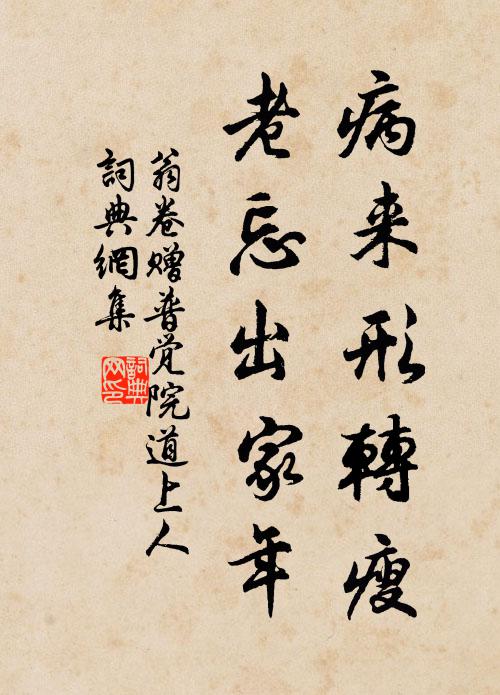 病来形轉瘦
老忘出家年
翁卷赠普觉院道上人
詞典網集
詞典
网印